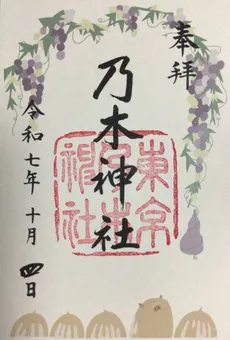 奉拝
乃木神社
東京乃木神社
令和七年十月四日